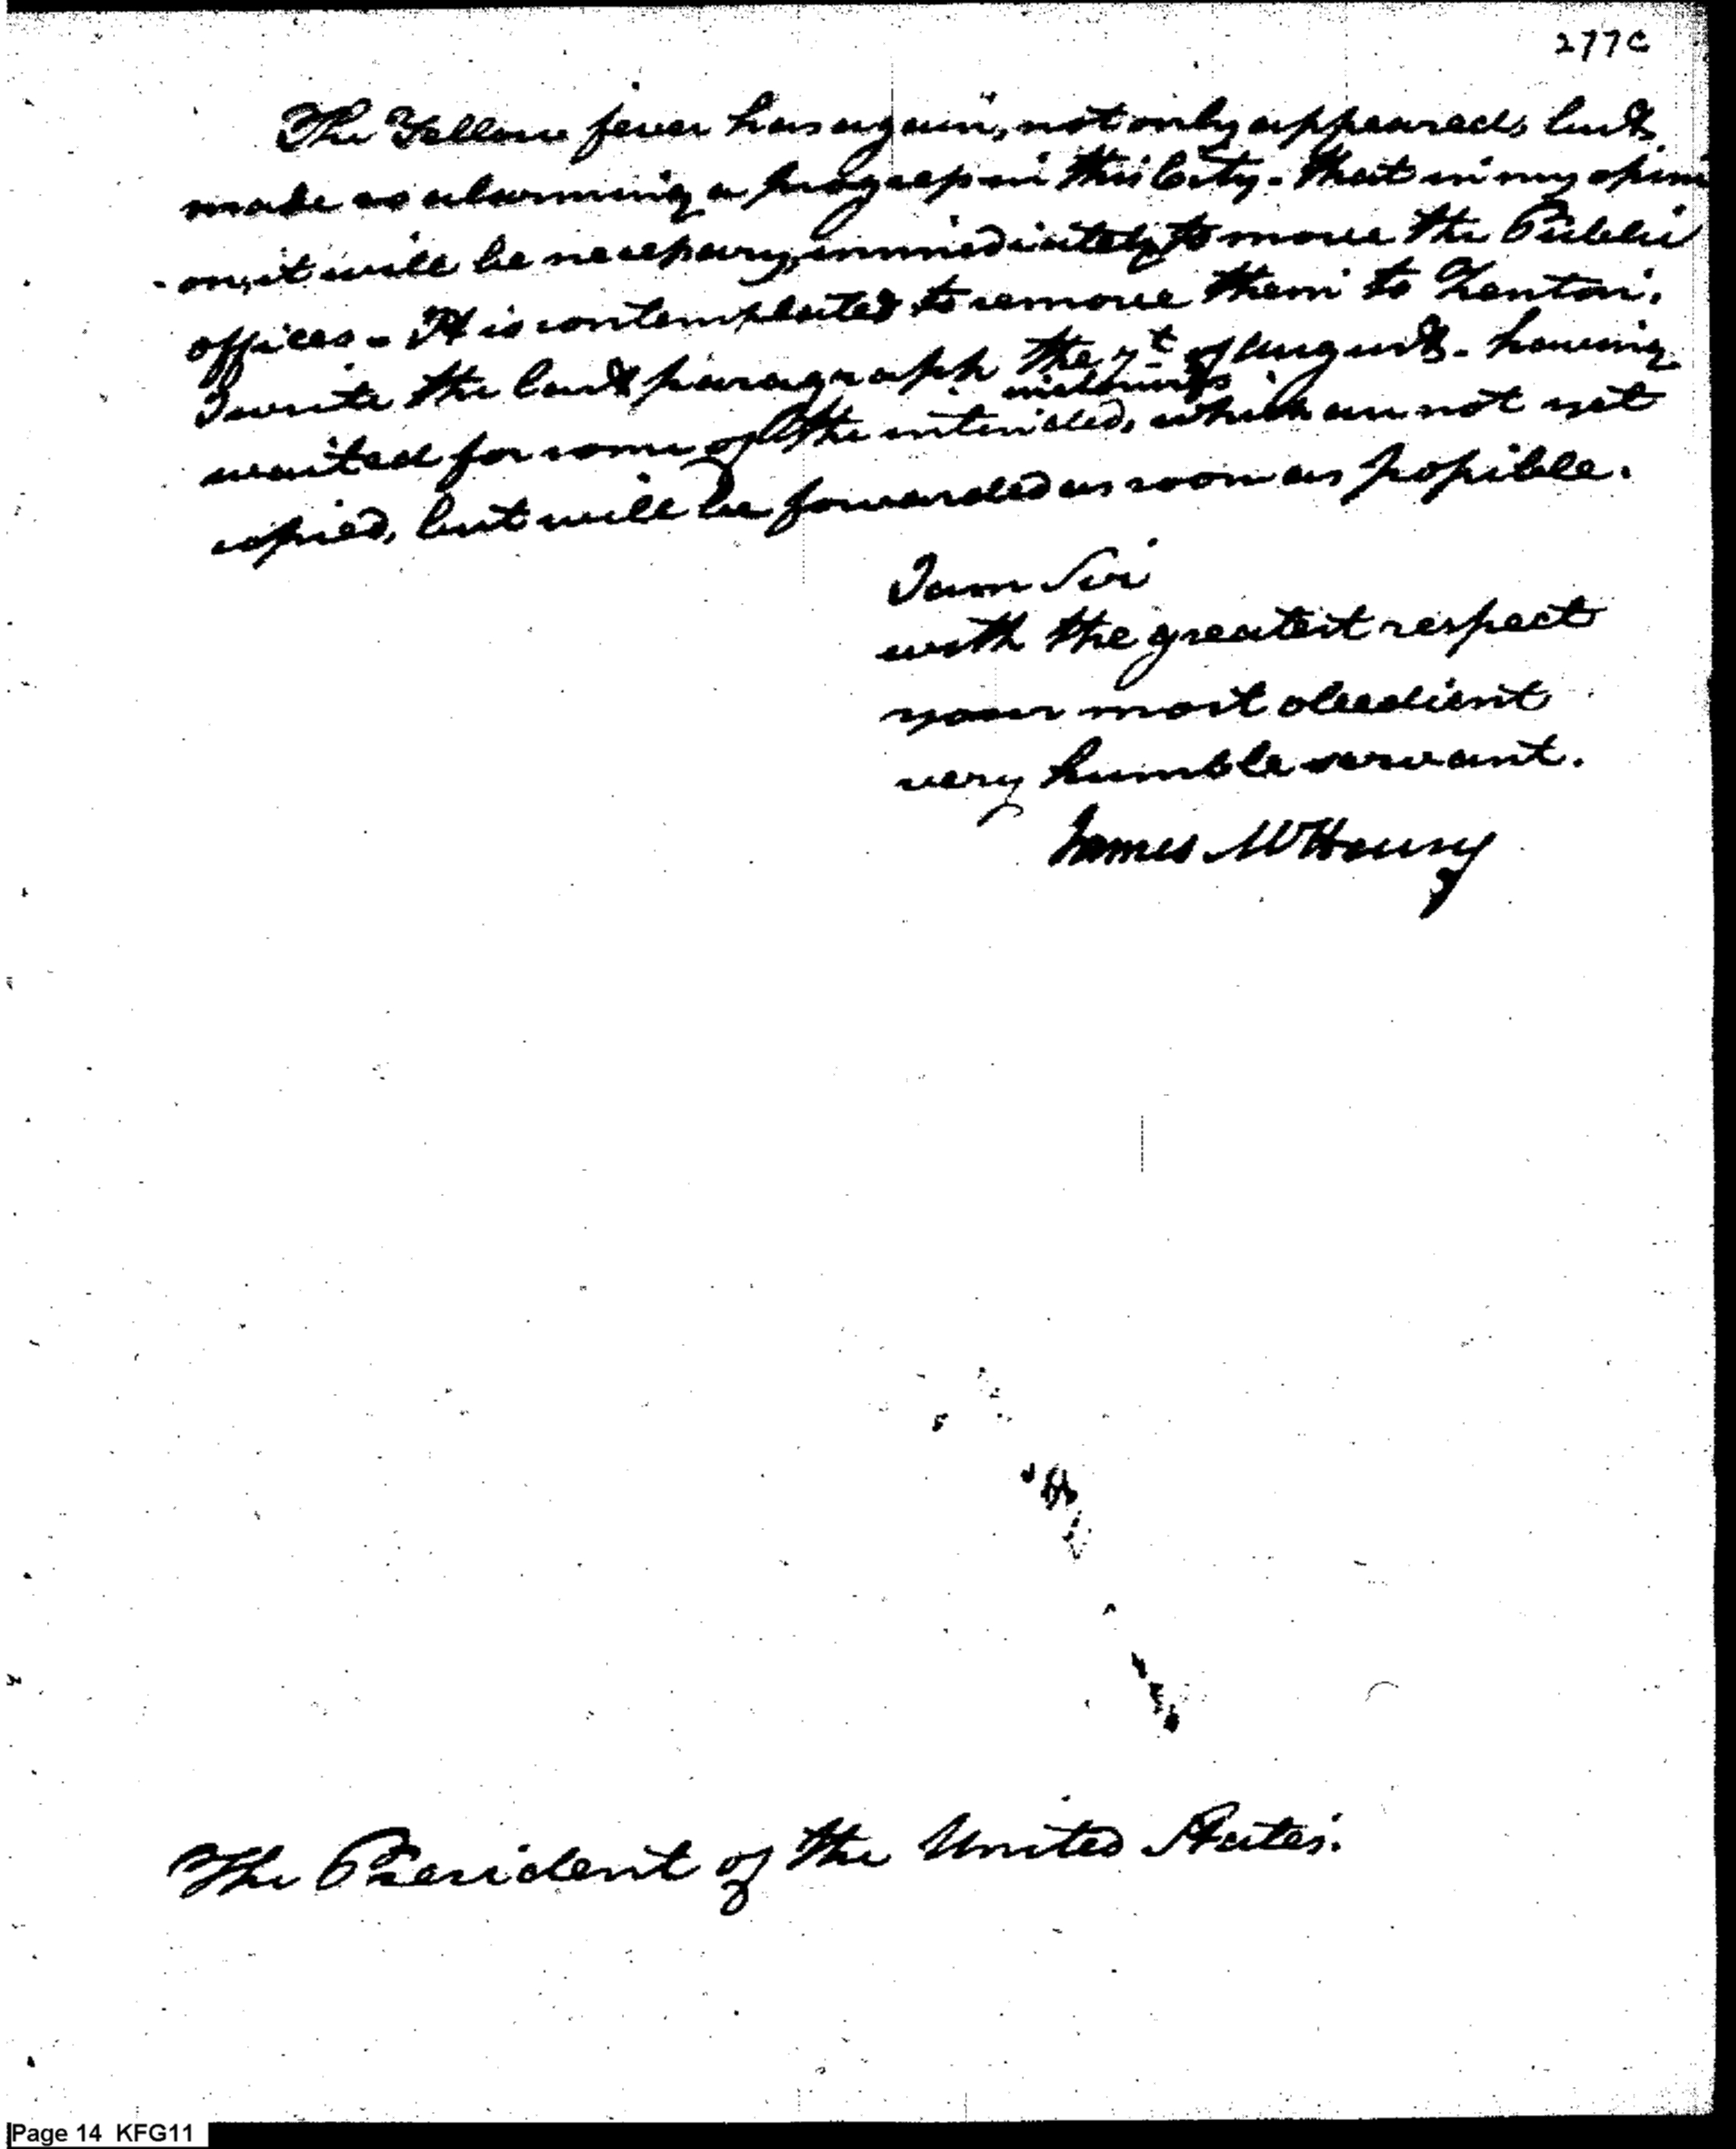 277C
The Yellow fever has again, not only appeared, but
made so alarming a progress in this City. that in my opini
-on, it will be necessary, immediately to move the Public
offices - It is contemplated to remove them to Trenton.
I write the last paragraph the 7t of August. having
inclosures
waited for some of the intended, which are not yet
copied, but will be forwarded as soon as possible.
I am Sir
with the greatest respect
your most obedient
very humble servant.
James McHenry
The President of the United States.
Page 14 KFG11